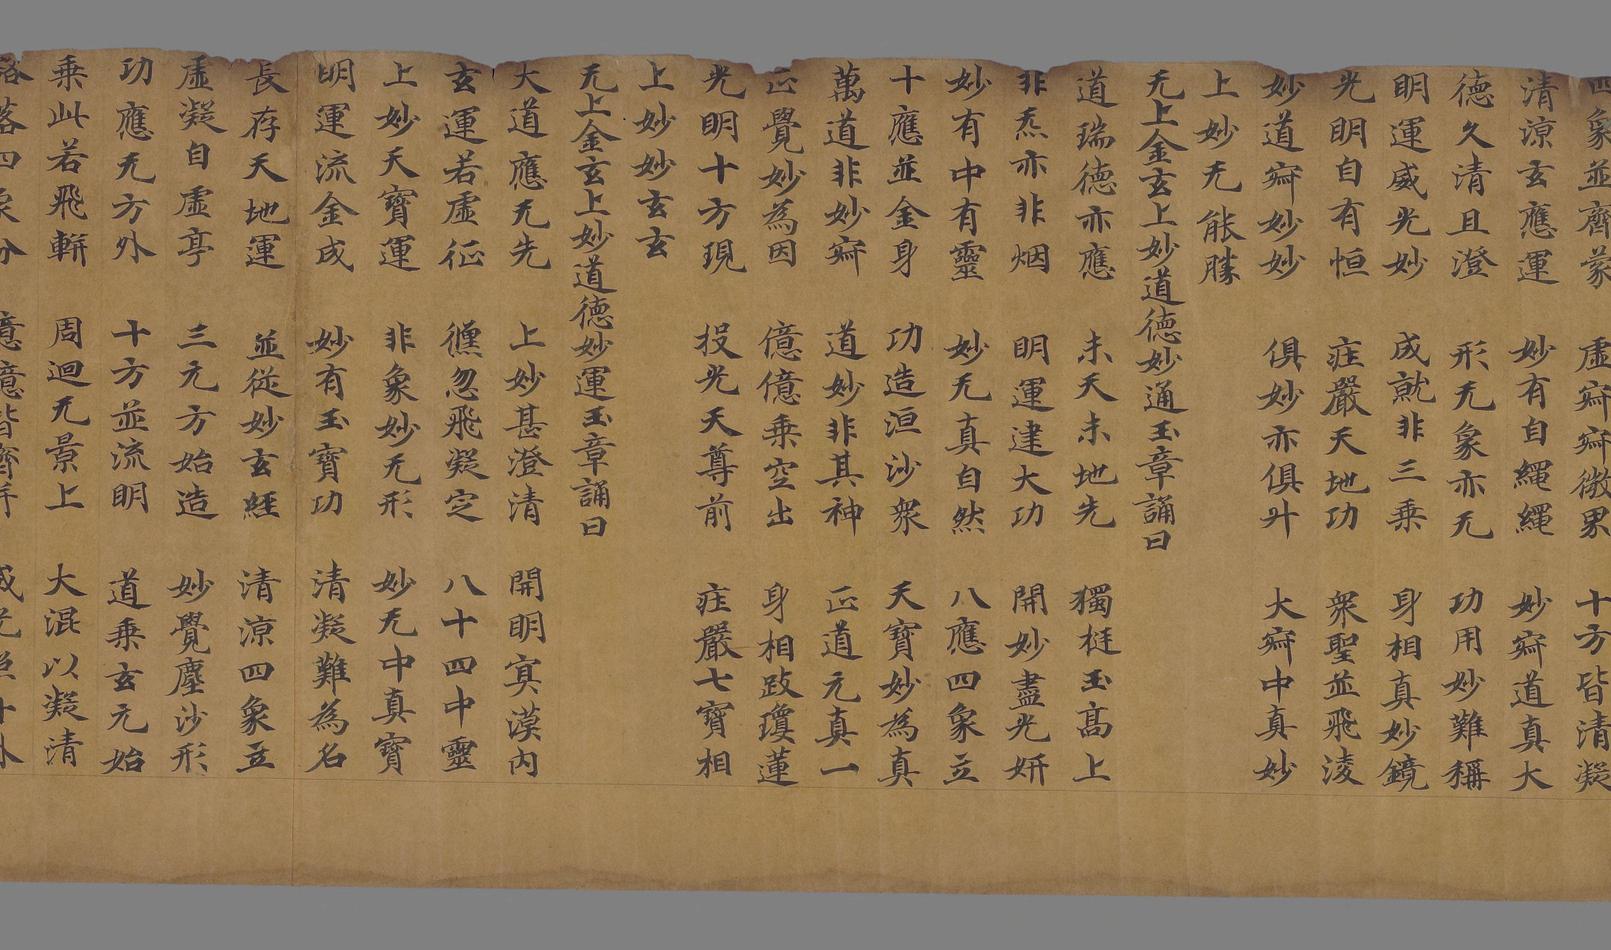 四象並齊蒙　虛寂寂微果　十方皆清凝
清涼玄應運　妙有自繩繩　妙寂道真大
德久清且澄　形无象亦无　功用妙難稱
明運威光妙　成就非三乗　身相真妙鏡
光明自有恒　疰嚴天地功　衆聖並飛淩
妙道寂妙妙　俱妙亦俱升　大寂中真妙
上妙无能勝
无上金玄上妙道德妙通玉章誦曰
道瑞德亦應　未天未地先　獨挺玉髙上
非炁亦非烟　明運建大功　開妙盡光妍
妙有中有靈　妙无真自然　八應四象立
十應並金身　功造洹沙衆　天寶妙為真
萬道非妙寂　道妙非其神　正道元真一
正覺妙為因　億億乗空出　身相跂瓊蓮
光明十方現　投光天尊前　疰嚴七寶相
上妙妙玄玄
无上金玄上妙道德妙運玉章誦曰
大道應无先　上妙甚澄清　開明寞漠內
玄運若虛征　儵忽飛凝定　八十四中靈
上妙天寶運　非象妙无形　妙无中真寶
明運流金成　妙有玉寶功　清凝難為名
長存天地運　並從妙玄經　清涼四象立
虛凝自虛亭　三元方始造　妙覺塵沙形
功應无方外　十方並流明　道乗玄元始
乗此若飛軿　周迴无景上　大混以凝清
落落四　億億皆齊并　威光　十外